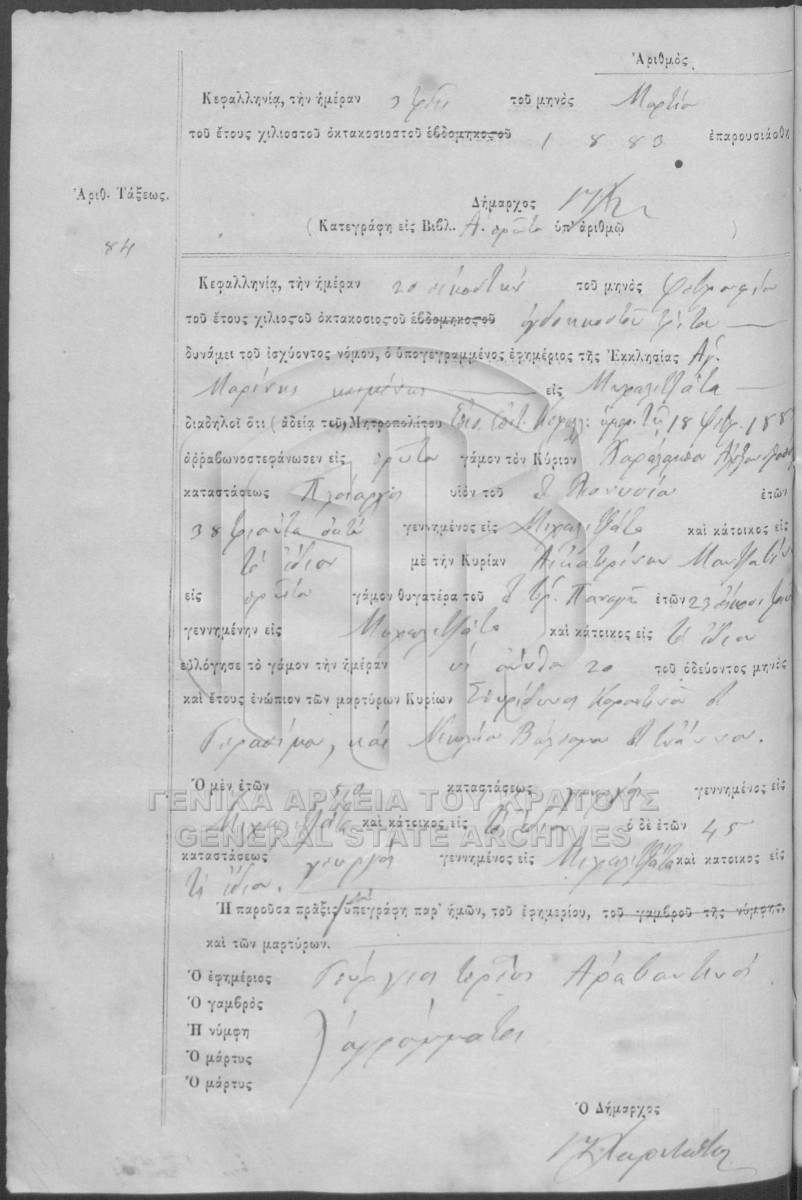 Ἀριθμὸς
Κεφαλληνίᾳ, τὴν ἡμέραν 3 τρίτη τοῦ μηνὸς Μαρτίου
τοῦ ἔτους χιλιοστοῦ ὀκτακοσιοστοῦ ἑβδομηκοστοῦ 1883 ἐπαρουσιάσθη
Ἀριθ. Τάξεως.
84
Δήμαρχος
( Κατεγράφη εἰς Βιβλ. Α. πρῶτο ὑπ' ἀριθμῷ )
Κεφαλληνίᾳ, τὴν ἡμέραν 20 εἰκοστὴν τοῦ μηνὸς Φεβρουαρίου
τοῦ ἔτους χιλιοστοῦ ὀκτακοσιοστοῦ ἑβδομηκοστοῦ ὀγδοηκοστοῦ τρίτου
δυνάμει τοῦ ἰσχύοντος νόμου, ὁ ὑπογεγραμμένος ἐφημέριος τῆς Ἐκκλησίας Ἁγ.
Μαρίνης κειμένης εἰς Μιχαλιτζάτα
διαδηλοῖ ὅτι ( ἀδείᾳ τοῦ, Μητροπολίτου 18 Φεβρ. 188
ἀῤῥαβωνοστεφάνωσεν εἰς πρῶτο γάμον τὸν Κύριον Χαράλαμπο
καταστάσεως Πλοίαρχος υἱὸν τοῦ Διονυσίου ἐτῶν
38 τριάντα ὀκτώ γεννημένος εἰς Μιχαλιτζάτα καὶ κάτοικος εἰς
τὸ ἴδιον μὲ τὴν Κυρίαν Αἰκατερίνην
εἰς πρῶτο γάμον θυγατέρα τοῦ ἐτῶν 23 εἴκοσι τρία
γεννημένην εἰς Μιχαλιτζάτα καὶ κάτοικος εἰς τὸ ἴδιον
εὐλόγησε τὸ γάμον τὴν ἡμέραν 20 τοῦ ὁδεύοντος μηνὸς
καὶ ἔτους ἐνώπιον τῶν μαρτύρων Κυρίων Σπυρίδωνος
Γερασίμου, καὶ Νικολάου Ἰωάννου.
Ὁ μὲν ἐτῶν καταστάσεως γεωργός γεννημένος εἰς
Μιχαλιτζάτα καὶ κάτοικος εἰς τὸ ἴδιον ὁ δὲ ἐτῶν 45
καταστάσεως γεωργός γεννημένος εἰς Μιχαλιτζάτα καὶ κατοικος εἰς
τὸ ἴδιον.
Ἡ παροῦσα πρᾶξις ὑπεγράφη παρ' ἡμῶν, τοῦ ἐφημερίου, τοῦ γαμβροῦ τῆς νύμφης,
καὶ τῶν μαρτύρων.
Ὁ ἐφημέριος Γεώργιος ἱερεύς Ἀραβαντινός
Ὁ γαμβρὸς
Ἡ νύμφη ἀγράμματοι
Ὁ μάρτυς
Ὁ μάρτυς
Ὁ Δήμαρχος
ΓΕΝΙΚΑ ΑΡΧΕΙΑ ΤΟΥ ΚΡΑΤΟΥΣ
GENERAL STATE ARCHIVES